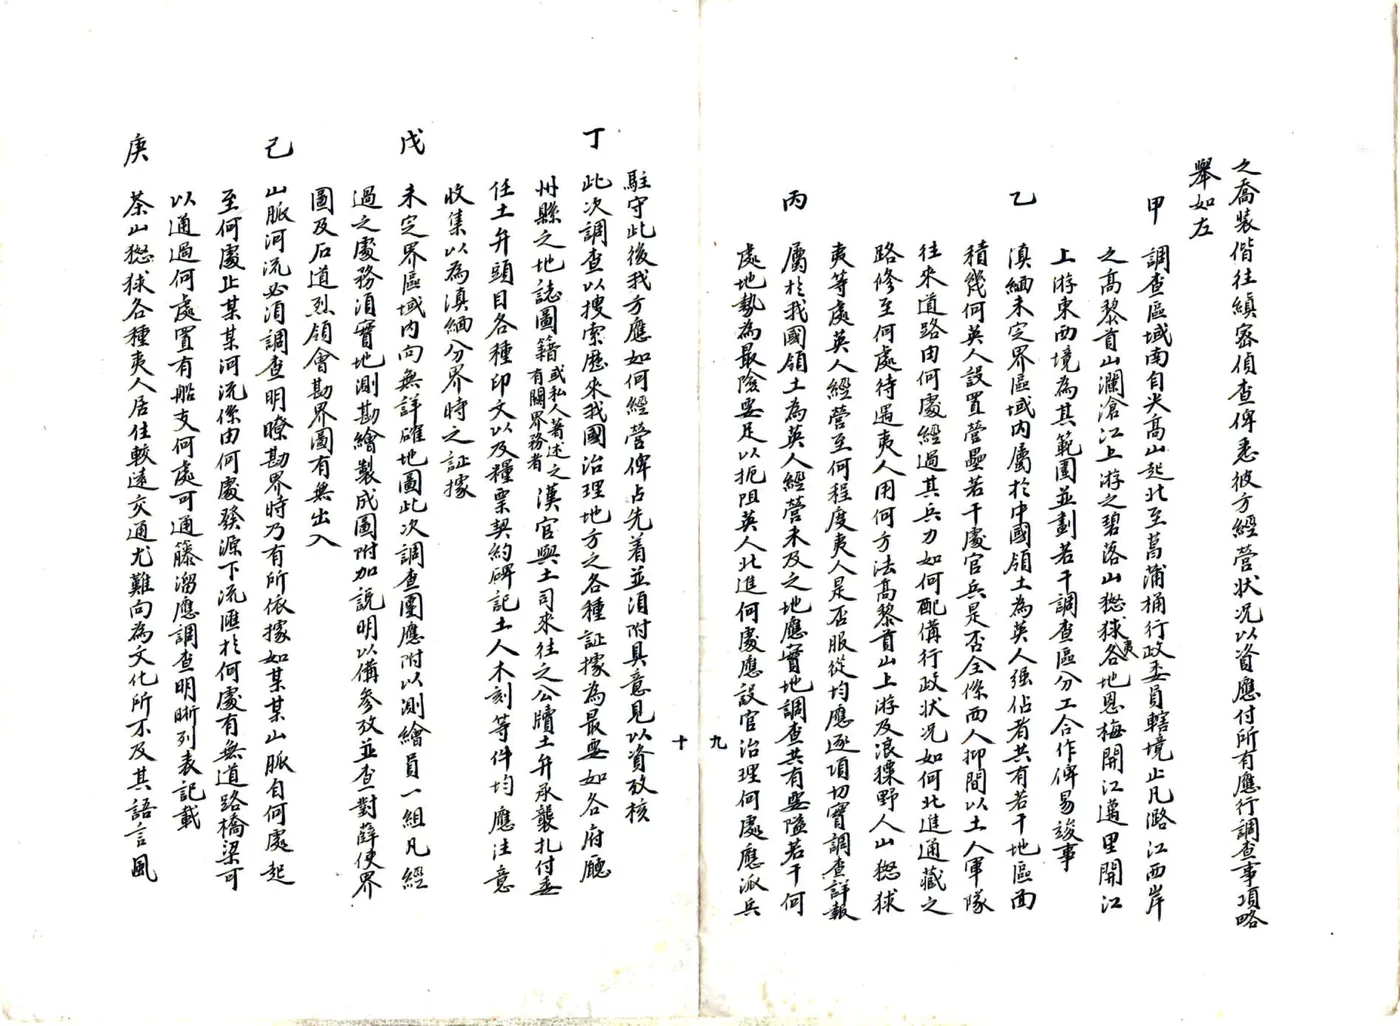 之喬裝偕往縝密偵查俾悉彼方經營狀況以資應付所有應行調查事項略
舉如左
甲 調查區域南自尖高山起北至菖蒲桶行政委員轄境止凡潞江西岸
之高黎貢山瀾滄江上游之碧落山怒猍夷各地恩梅開江邁里開江
上游東西境為其範圍並劃若干調查區分工合作俾易竣事
乙 滇緬未定界區域內屬於中國領土為英人強佔者共有若干地區面
積幾何英人設置營壘若干處官兵是否全係西人抑間以土人軍隊
往來道路由何處經過其兵力如何配備行政狀况如何北進通藏之
路修至何處待遇夷人用何方法高黎貢山上游及浪猓野人山怒猍
夷等處英人經營至何程度夷人是否服從均應逐項切實調查詳報
丙 屬於我國領土為英人經營未及之地應實地調查共有要隘若干何
處地勢為最險要足以扼阻英人北進何處應設官治理何處應派兵
九
十
駐守此後我方應如何經營俾占先着並須附具意見以資攷核
丁 此次調查以搜索歷來我國治理地方之各種証據為最要如各府廳
州縣之地誌圖籍或私人著述之有關界務者漢官與土司來往之公牘土弁承襲札付委
任土弁頭目各種印文以及糧票契約碑記土人木刻等件均應注意
收集以為滇緬分界時之証據
戊 未定界區域內向無詳確地圖此次調查團應附以測繪員一組凡經
過之處務須實地測勘繪製成圖附加說明以備參攷並查對薛使界
圖及石道烈領會勘界圖有無出入
己 山脈河流必須調查明瞭勘界時乃有所依據如某某山脈自何處起
至何處止某某河流係由何處發源下流匯於何處有無道路橋梁可
以通過何處置有船支何處可通藤溜應調查明晰列表記載
庚 茶山怒猍各種夷人居住較遠交通尤難向為文化所不及其語言風